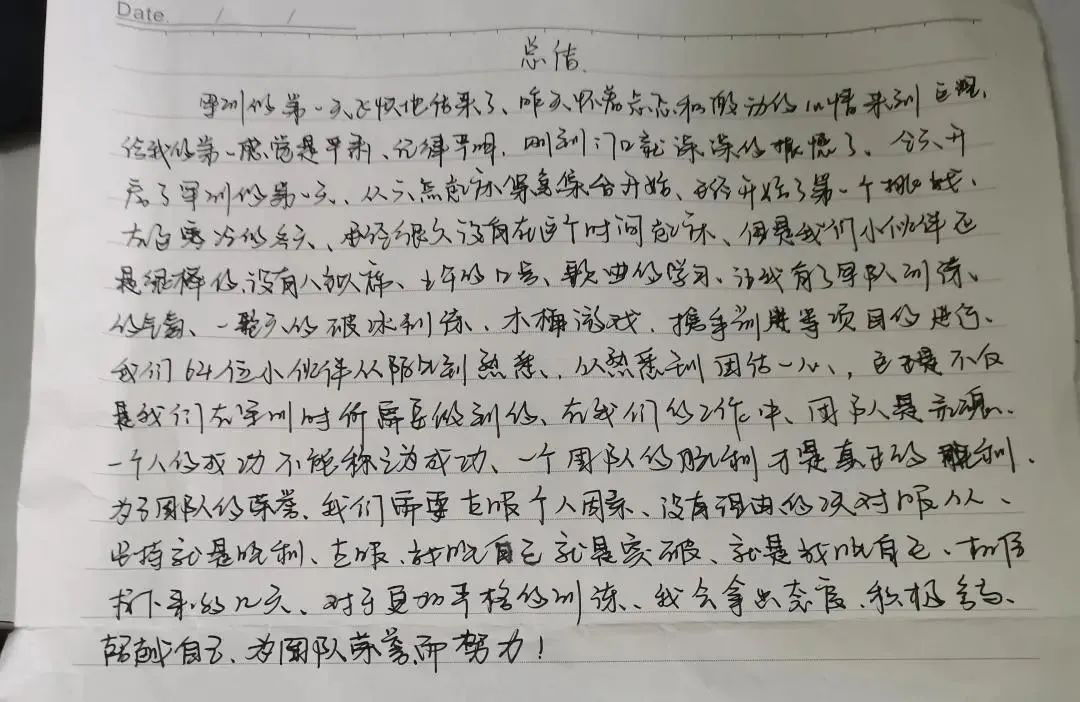 Date. / /
总结.
军训的第一天飞快地结束了、昨天怀着忐忑和激动的心情来到
给我的第一感觉是严肃、纪律严明,刚到门口就深深的震憾了、今天开
启了军训的第一天、从六点起床紧急集合开始、已经开始了第一个挑战、
在这寒冷的冬天、已经很久没有在这个时间起床、但是我们小伙伴还
是很棒的,没有人缺席、上午的口号、歌曲的学习、让我有了军队训练、
的气息、一整天的破冰训练、木桶游戏、携手前进等项目的进行、
我们64位小伙伴从陌生到熟悉、从熟悉到团结一心、,这不仅
是我们在军训时所需要做到的、在我们的工作中、团队是灵魂、
一个人的成功不能称之为成功、一个团队的胜利才是真正的胜利.
为了团队的荣誉、我们需要克服个人因素、没有理由的绝对服从、
坚持就是胜利、克服、战胜自己就是突破、就是战胜自己、相信
接下来的几天、对于更加严格的训练、我会拿出态度、积极参与、
超越自己、为团队荣誉而努力!